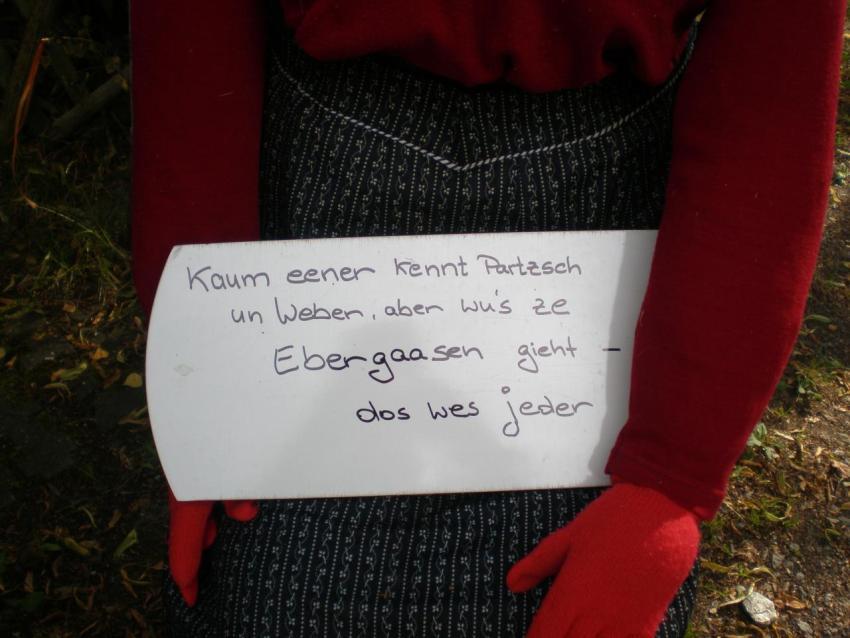 Kaum eener kennt Partzsch
un Weber, aber wu's ze
Ebergaasen gieht –
dos wes jeder